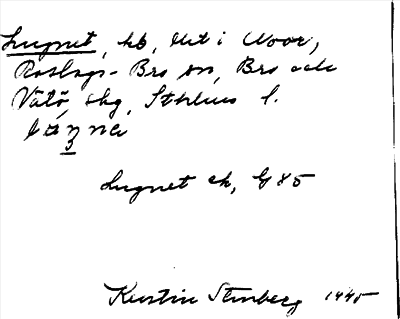 Lugnet, hb, Utt i Noor,
Roslags-Bro sn, Bro och
Vätö, skg, Sthlms l.
Lugnet ek, G 85
Kerstin Stenberg 1945